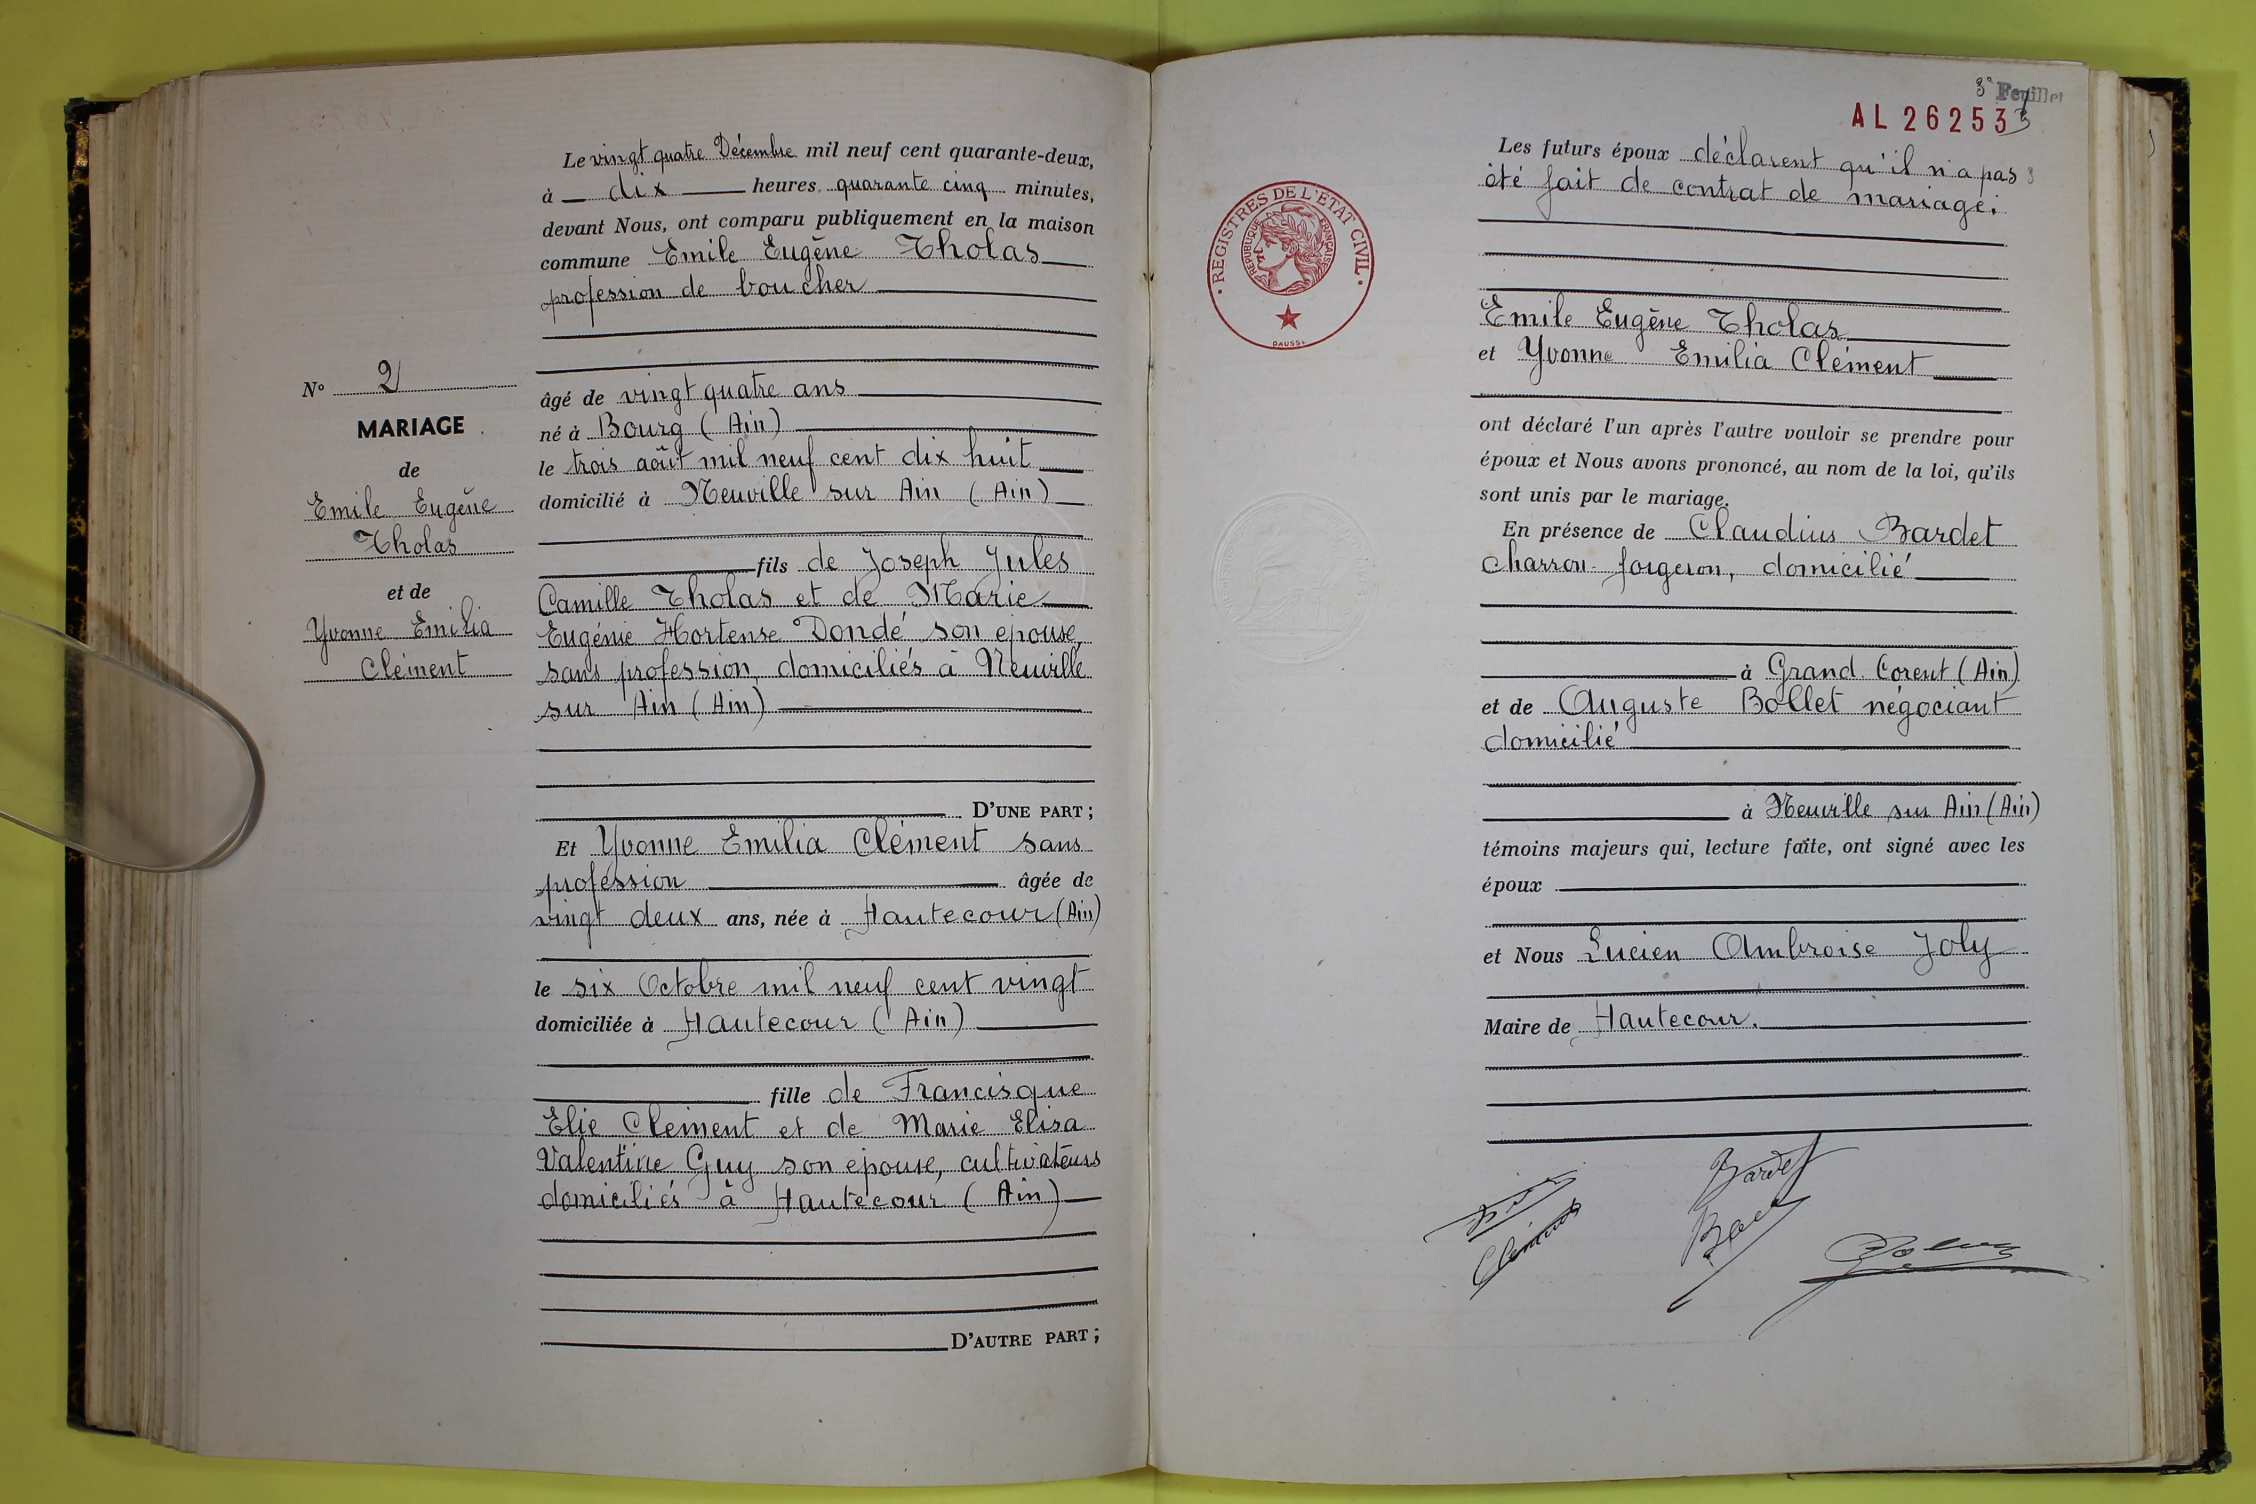 Le vingt quatre Décembre mil neuf cent quarante-deux,
à dix heures quarante cinq minutes,
devant Nous, ont comparu publiquement en la maison
commune Emile Eugène Tholas
profession de boucher
N° 2
MARIAGE
de
Emile Eugène
Tholas
et de
Yvonne Emilia
Clément
âgé de vingt quatre ans
né à Bourg (Ain)
le trois août mil neuf cent dix huit
domicilié à Neuville sur Ain (Ain)
fils de Joseph Jules
Camille Tholas et de Marie
Eugénie Hortense Dondé son epouse,
sans profession, domiciliés à Neuville
sur Ain (Ain)
D'UNE PART ;
Et Yvonne Emilia Clément sans
profession âgée de
vingt deux ans, née à Hautecour (Ain)
le six Octobre mil neuf cent vingt
domiciliée à Hautecour (Ain)
fille de Francisque
Elie Clément et de Marie Elisa
Valentine Guy son epouse, cultivateurs
domiciliés à Hautecour (Ain)
D'AUTRE PART ;
3e Feuillet
AL 26253
REGISTRES DE L'ÉTAT CIVIL
RÉPUBLIQUE FRANÇAISE
DAUSSY
Les futurs époux déclarent qu'il n'a pas
été fait de contrat de mariage.
Emile Eugène Tholas
et Yvonne Emilia Clément
ont déclaré l'un après l'autre vouloir se prendre pour
époux et Nous avons prononcé, au nom de la loi, qu'ils
sont unis par le mariage.
En présence de Claudius Bardet
charron-forgeron, domicilié
à Grand Corent (Ain)
et de Auguste Bollet négociant
domicilié
à Neuville sur Ain (Ain)
témoins majeurs qui, lecture faite, ont signé avec les
époux
et Nous Lucien Ambroise Joly
Maire de Hautecour.
Bardet
Clément